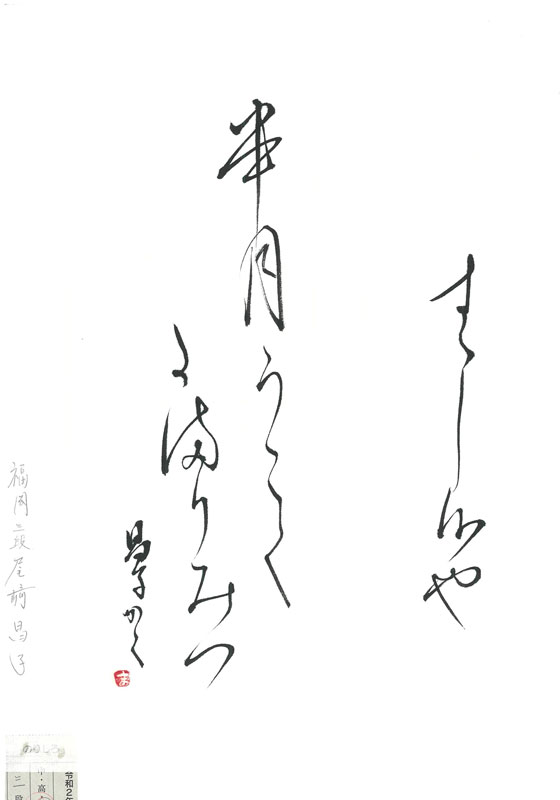 すゝし沙や
半月うこく
た満りみつ
昌子かく
福岡 三段 尾崎 昌子
令和2年
・高
三段